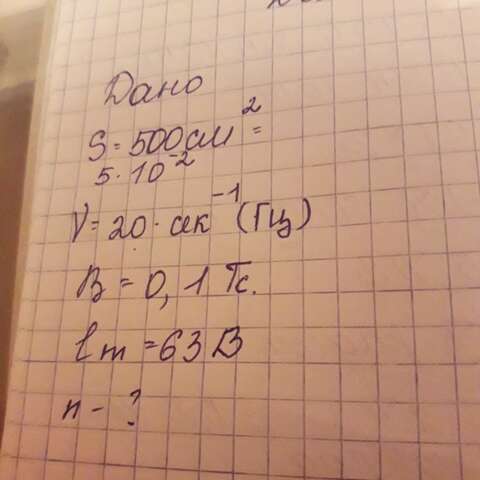 Дано
S = 500 см² =
5 · 10⁻²
V = 20 · сек⁻¹ (Гц)
B = 0,1 Тс.
ℓm = 63 В
n - ?